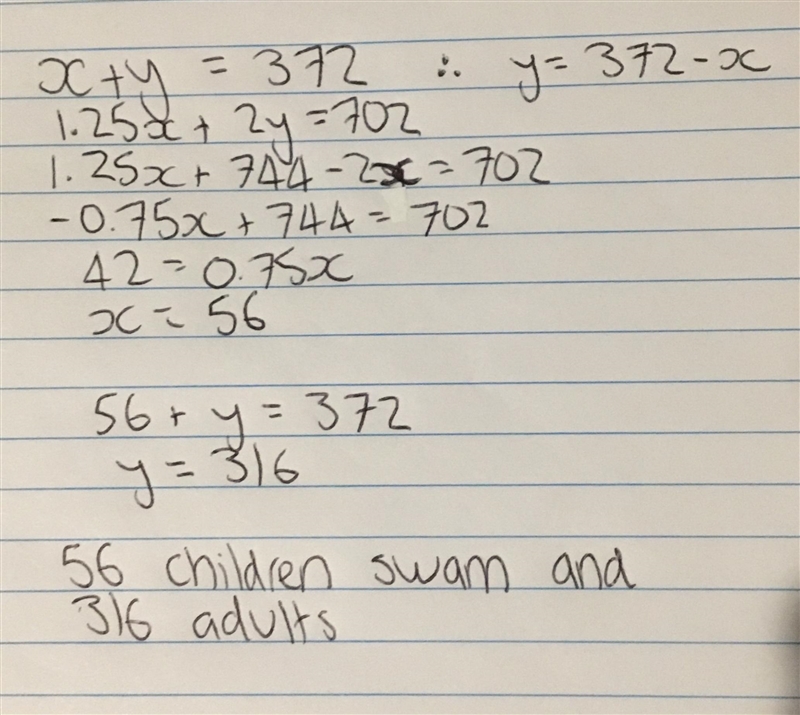 x+y = 372 ∴ y = 372-x
1.25x + 2y = 702
1.25x + 744 - 2x = 702
-0.75x + 744 = 702
42 = 0.75x
x = 56
56 + y = 372
y = 316
56 children swam and
316 adults